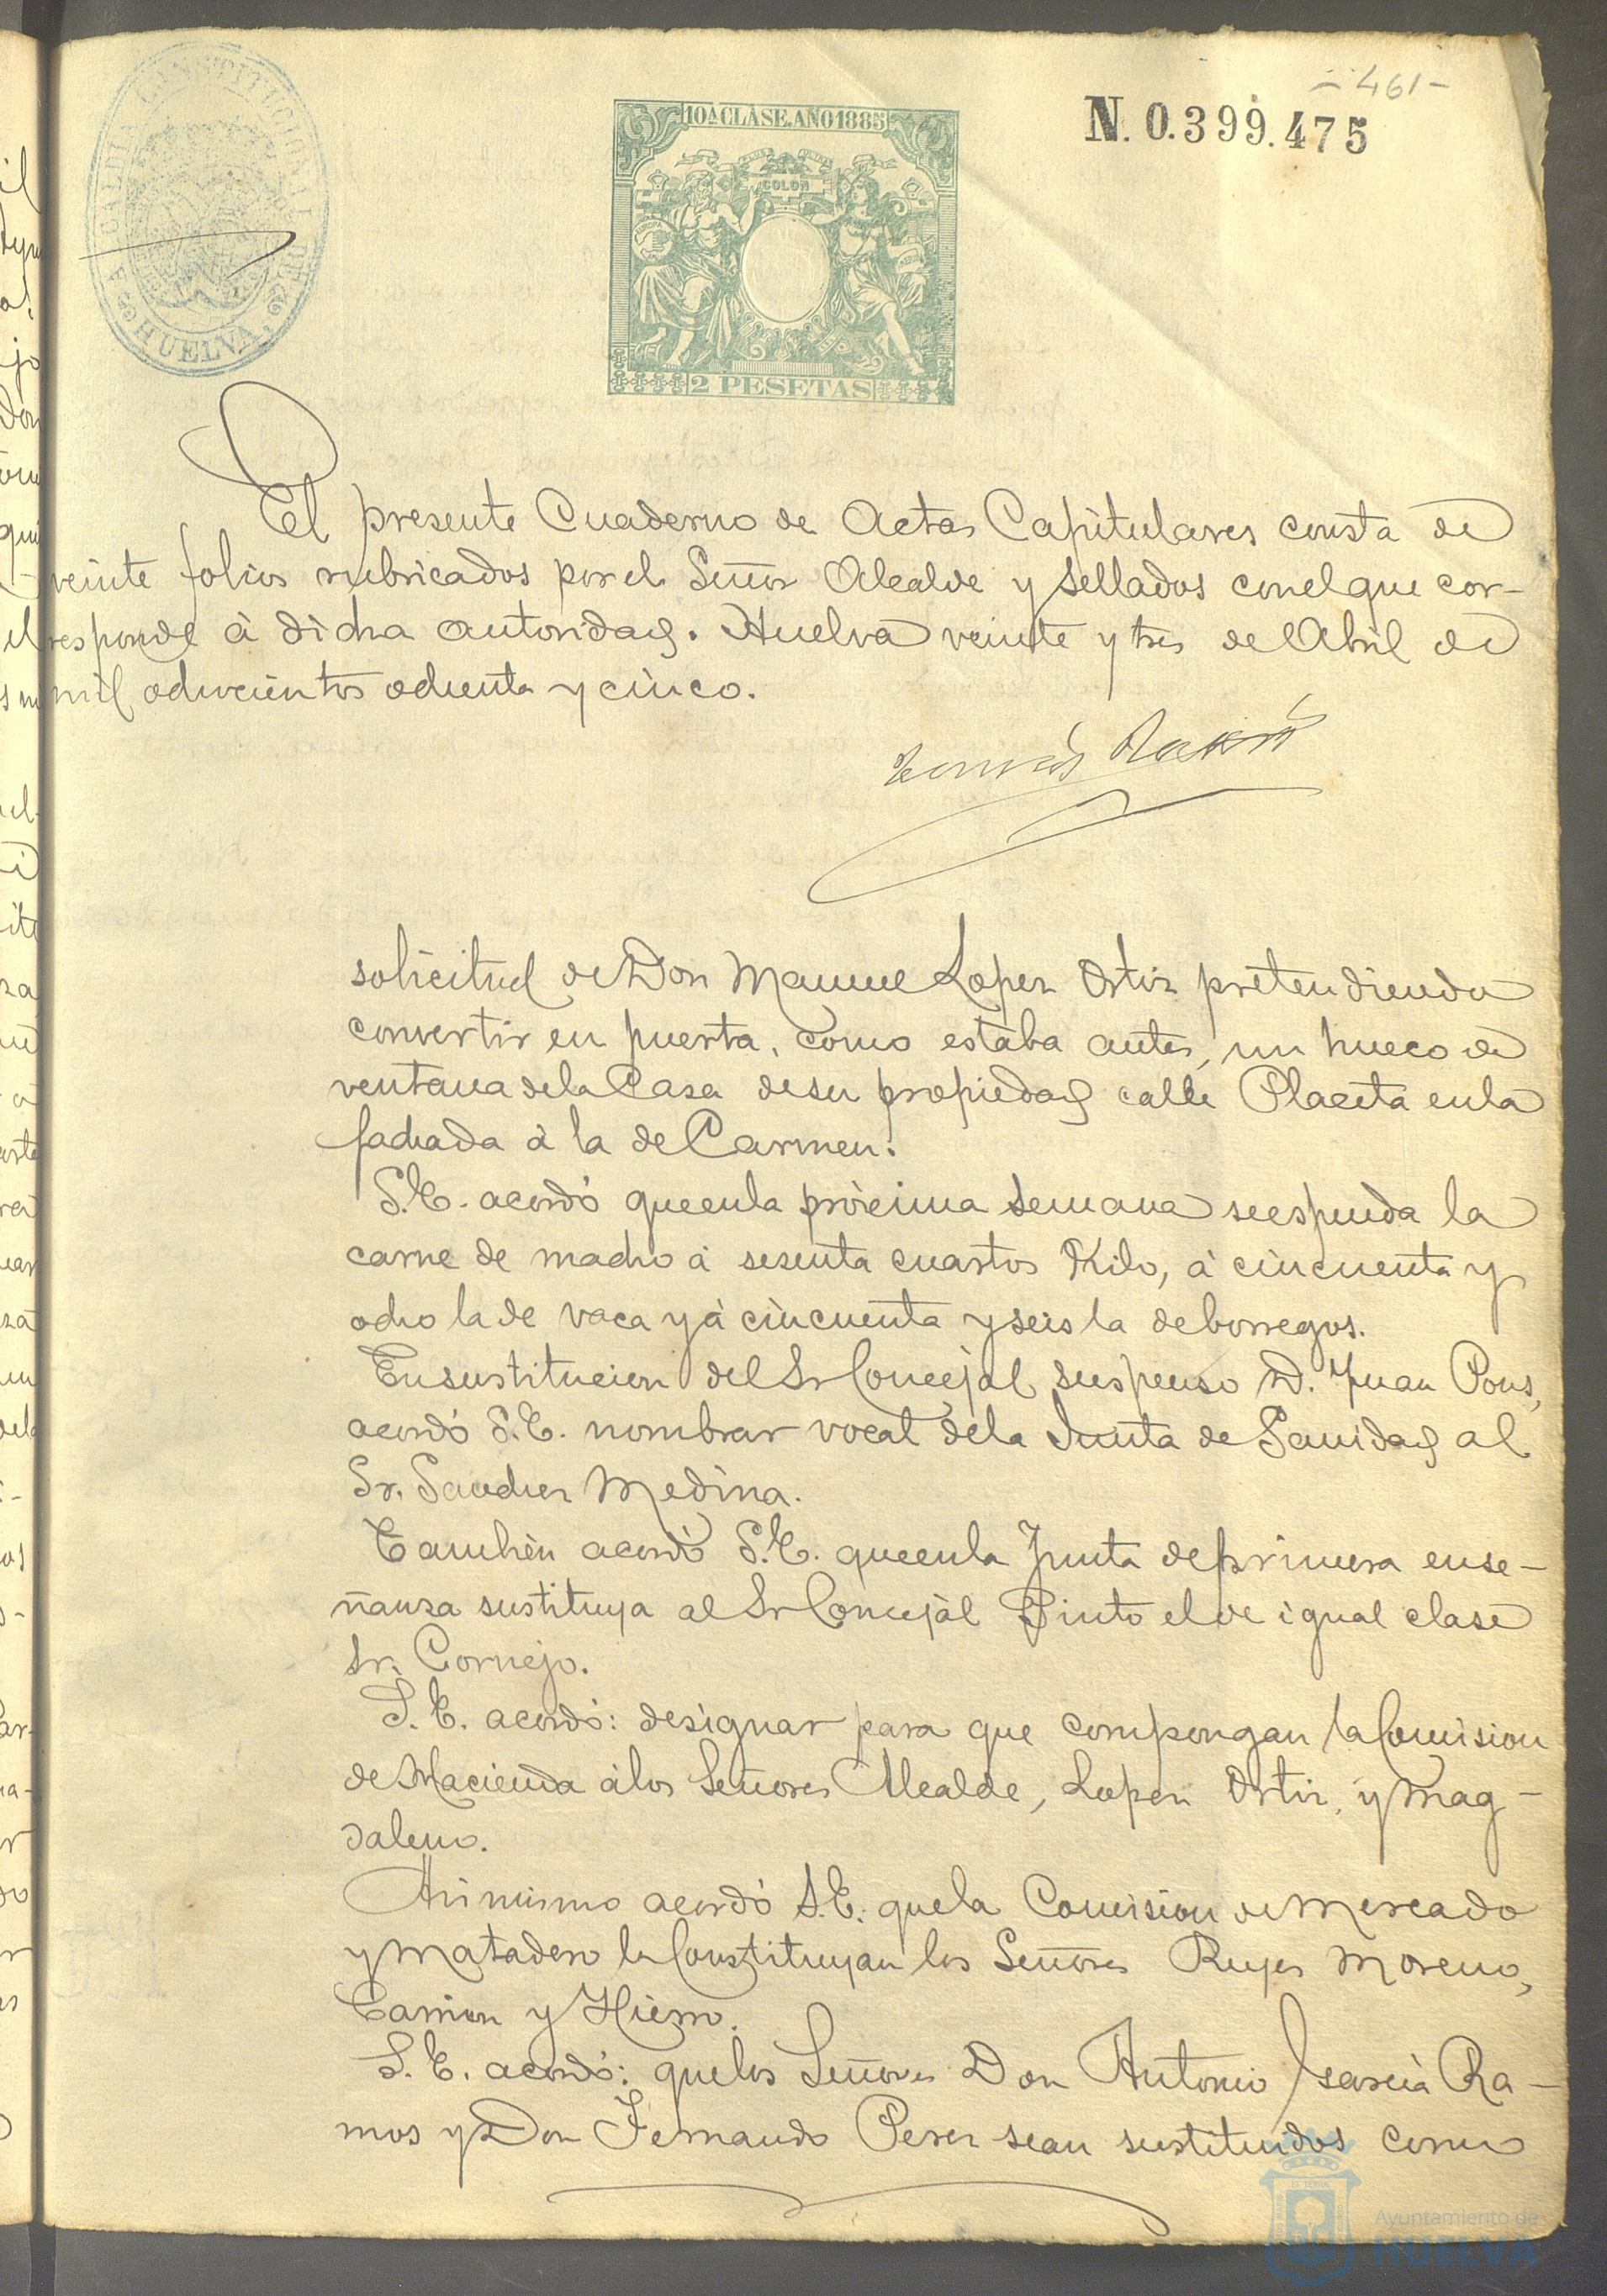 -461-
N. 0.399.475
ALCALDIA CONSTITUCIONAL DE HUELVA
10ª CLASE. AÑO 1885
COLON
2 PESETAS
El presente Cuaderno de Actas Capitulares consta de
veinte folios rubricados por el Señor Alcalde y sellados con el que cor-
responde à dicha autoridad. Huelva veinte y tres de Abril de
mil ochocientos ochenta y cinco.
solicitud de Don Manuel Lopez Ortiz pretendiendo
convertir en puerta, como estaba antes, un hueco de
ventana de la Casa de su propiedad calle Placeta en la
fachada à la de Carmen.
S.E. acordó que en la próxima semana se espenda la
carne de macho à sesenta cuartos Kilo, à cincuenta y
ocho la de vaca y à cincuenta y seis la de borregos.
En sustitucion del Sr Concejal suspenso D. Juan Pons,
acordó S.E. nombrar vocal de la Junta de Sanidad al
Sr. Sanchez Medina.
Tambièn acordó S.E. que en la Junta de primera ense-
ñanza sustituya al Sr Concejal Pinto el de igual clase
Sr. Cornejo.
S.E. acordó: designar para que compongan la Comision
de Hacienda à los Señores Alcalde, Lopez Ortiz, y Mag-
daleno.
Asi mismo acordó S.E. que la Comision de Mercado
y Matadero la Constituyan los Señores Reyes Moreno,
Carrion y Hierro.
S.E. acordó: que los Señores Don Antonio Garcia Ra-
mos y Don Fernando Perez sean sustituidos como
Ayuntamiento de
HUELVA